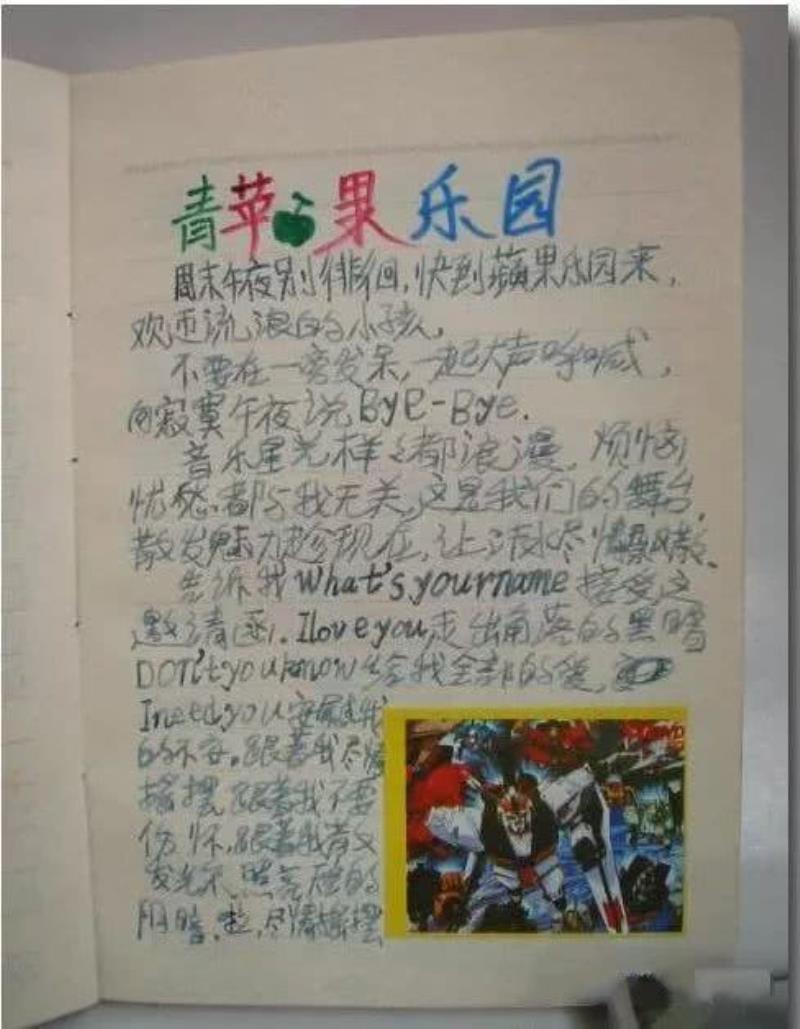 青苹果乐园
周末午夜别徘徊，快到蘋果乐园来，
欢迎流浪的小孩。
不要在一旁发呆，一起大声呼喊，
向寂寞午夜说Bye-Bye.
音乐星光样样都浪漫，烦恼
忧愁都与我无关，这是我们的舞台，
散发魅力趁现在，让汗水尽情
告诉我What's your name 接受这
邀请函. I love you 走出角落的黑暗
DON't you know 给我全部的爱，
I need you 安慰我
的不安。跟着我尽情
摇摆 跟着我不要
伤怀，跟着我散
发光 照亮 的
阴暗，啦，尽情摇摆